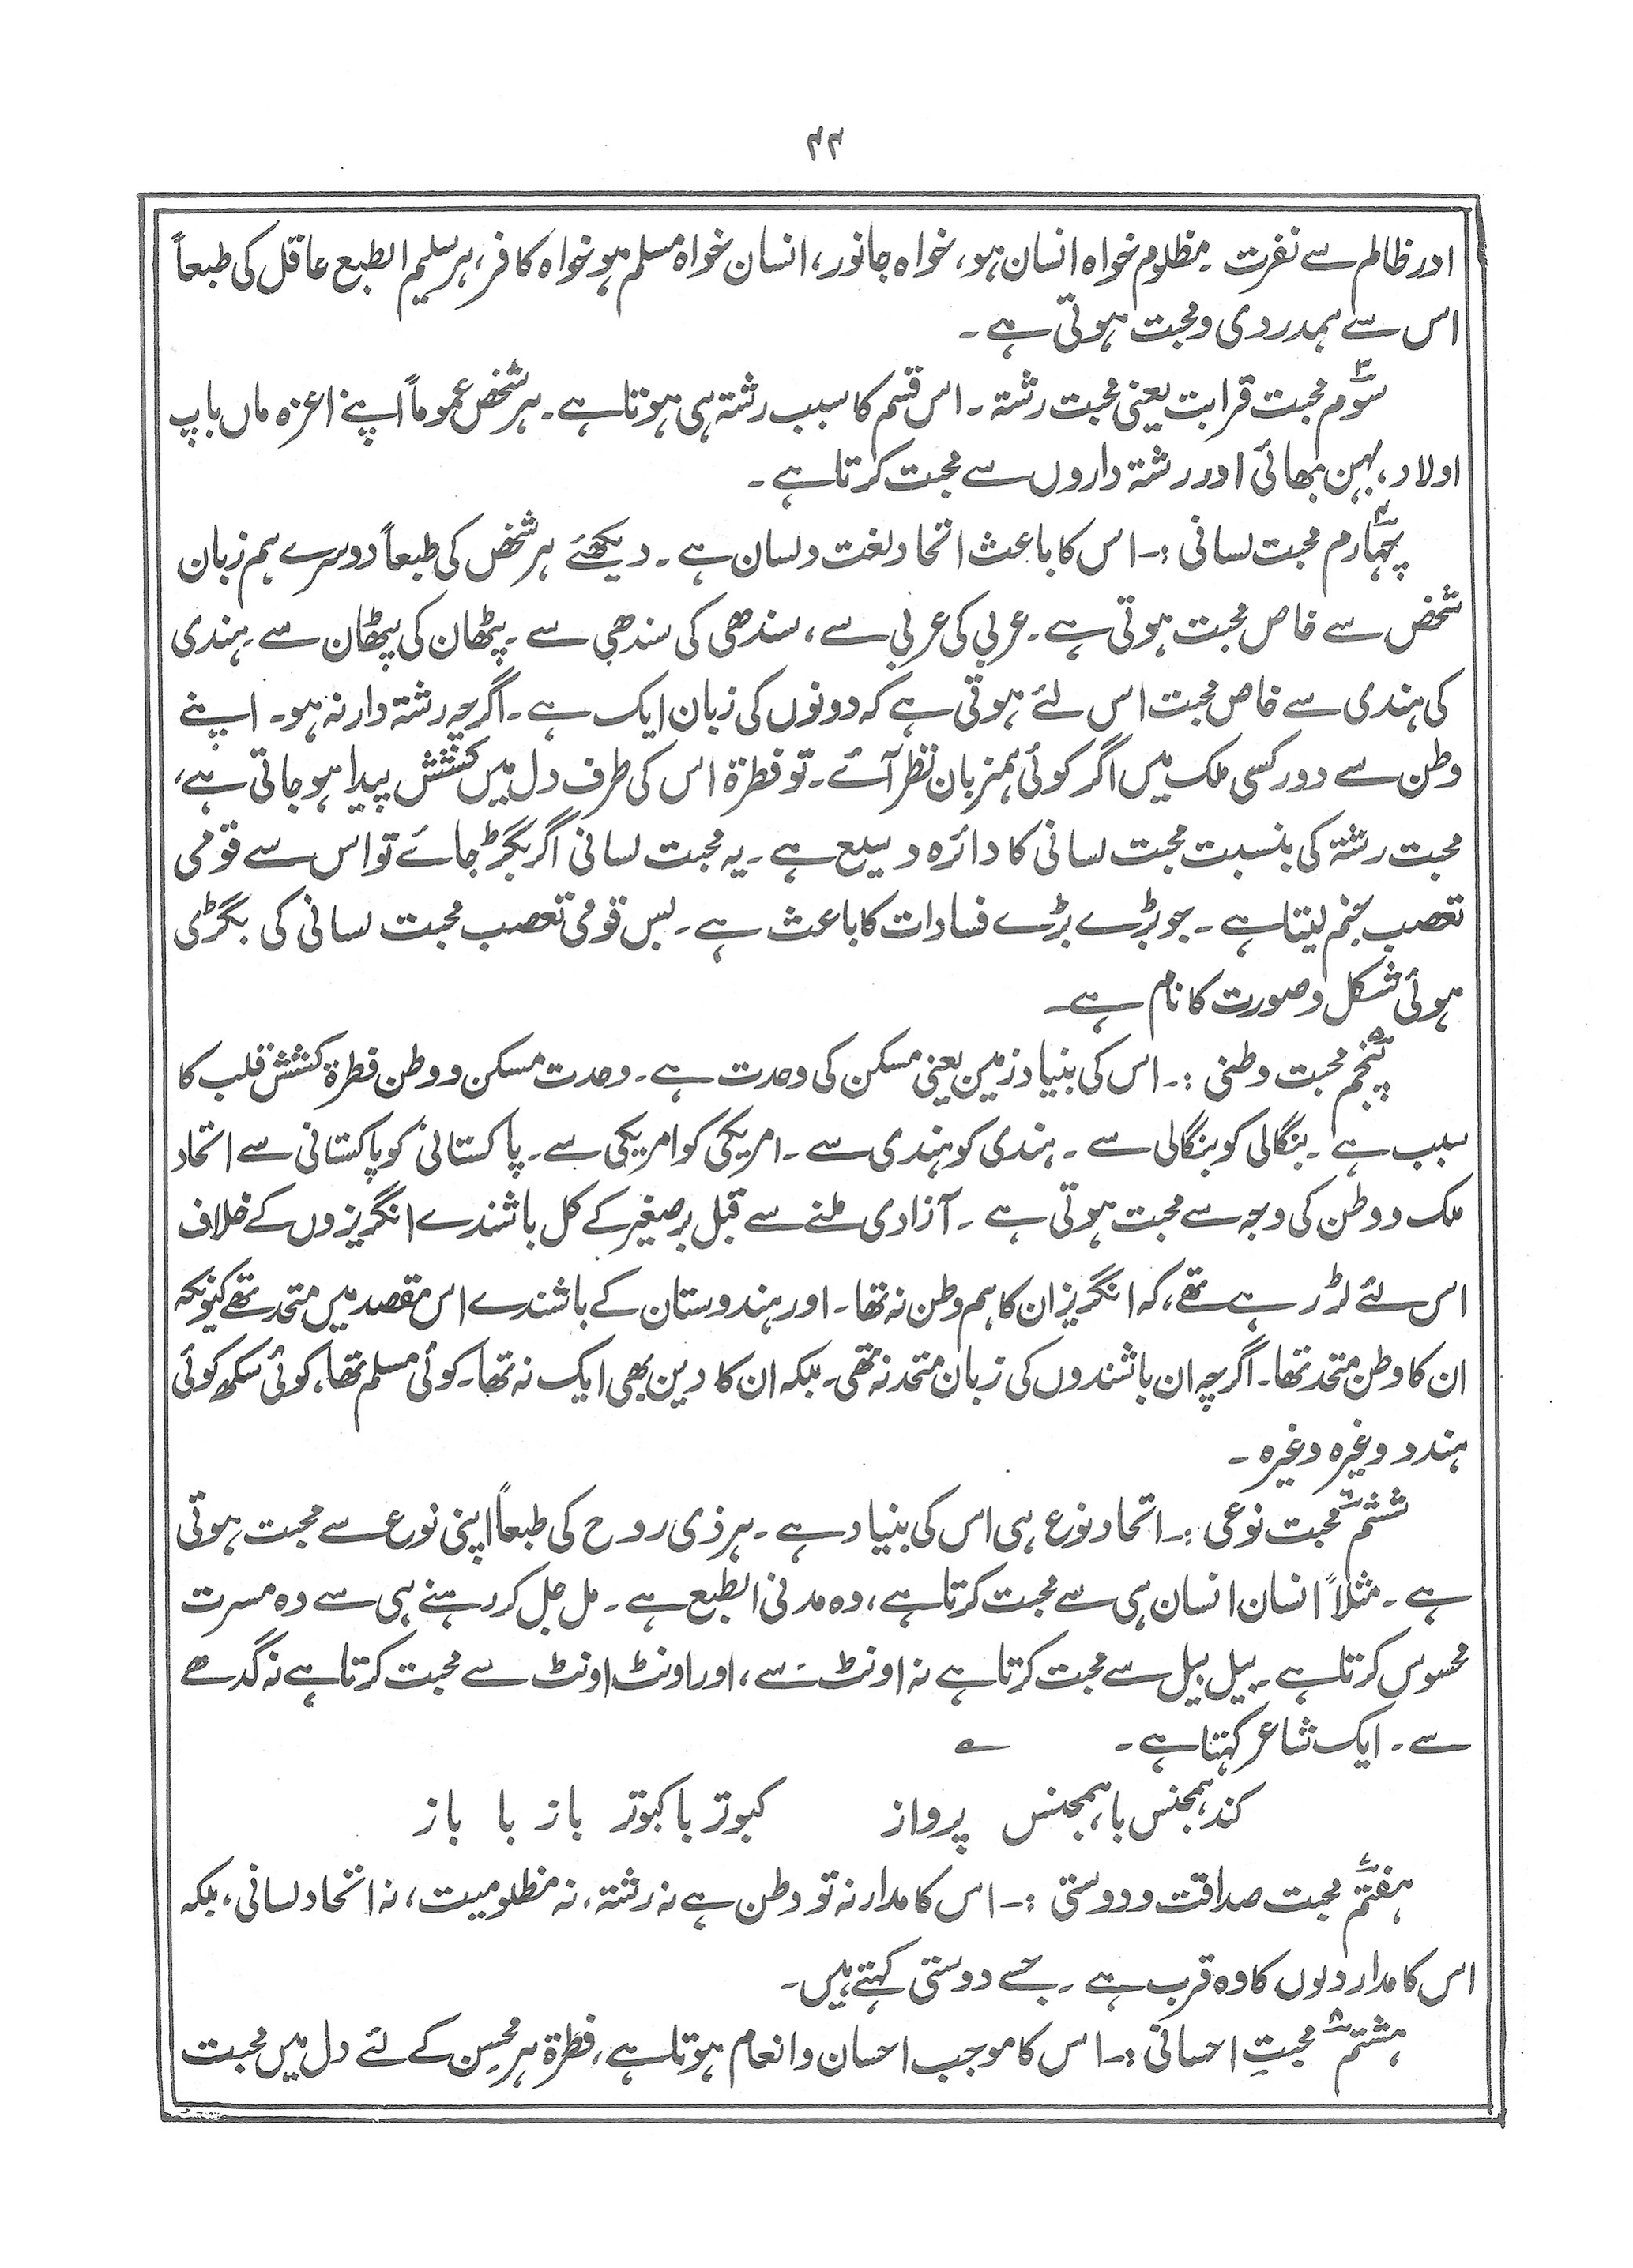 ۴۴
اور ظالم سے نفرت ۔ مظلوم خواہ انسان ہو، خواہ جانور، انسان خواہ مسلم ہو خواہ کافر، ہر سلیم الطبع عاقل کی طبعاً
اس سے ہمدردی و محبت ہوتی ہے ۔
سوّم محبت قرابت یعنی محبت رشتہ ۔ اس قسم کا سبب رشتہ ہی ہوتا ہے ۔ ہر شخص عموماً اپنے اعزہ ماں باپ
اولاد، بہن بھائی اور رشتہ داروں سے محبت کرتا ہے ۔
چہارم محبت لسانی :۔ اس کا باعث اتحاد لغت و لسان ہے ۔ دیکھئے ہر شخص کی طبعاً دوسرے ہم زبان
شخص سے خاص محبت ہوتی ہے ۔ عربی کی عربی سے، سندھی کی سندھی سے ۔ پٹھان کی پٹھان سے ۔ ہندی
کی ہندی سے خاص محبت اس لئے ہوتی ہے کہ دونوں کی زبان ایک ہے ۔ اگرچہ رشتہ دار نہ ہو ۔ اپنے
وطن سے دور کسی ملک میں اگر کوئی ہمزبان نظر آئے ۔ تو فطرۃ اس کی طرف دل میں کشش پیدا ہو جاتی ہے،
محبت رشتہ کی بنسبت محبت لسانی کا دائرہ وسیع ہے ۔ یہ محبت لسانی اگر بگڑ جائے تو اس سے قومی
تعصب جنم لیتا ہے ۔ جو بڑے بڑے فسادات کا باعث ہے ۔ بس قومی تعصب محبت لسانی کی بگڑی
ہوئی شکل و صورت کا نام ہے ۔
پنجم ۵ محبت وطنی :۔ اس کی بنیاد زمین یعنی مسکن کی وحدت ہے ۔ وحدت مسکن و وطن فطرۃ کشش قلب کا
سبب ہے ۔ بنگالی کو بنگالی سے ۔ ہندی کو ہندی سے ۔ امریکی کو امریکی سے ۔ پاکستانی کو پاکستانی سے اتحاد
ملک و وطن کی وجہ سے محبت ہوتی ہے ۔ آزادی ملنے سے قبل برصغیر کے کل باشندے انگریزوں کے خلاف
اس لئے لڑ رہے تھے، کہ انگریز ان کا ہم وطن نہ تھا ۔ اور ہندوستان کے باشندے اس مقصد میں متحد تھے کیونکہ
ان کا وطن متحد تھا ۔ اگرچہ ان باشندوں کی زبان متحد نہ تھی ۔ بلکہ ان کا دین بھی ایک نہ تھا ۔ کوئی مسلم تھا، کوئی سکھ کوئی
ہندو وغیرہ وغیرہ ۔
ششم ۶ محبت نوعی :۔ اتحاد نوع ہی اس کی بنیاد ہے ۔ ہر ذی روح کی طبعاً اپنی نوع سے محبت ہوتی
ہے ۔ مثلاً انسان انسان ہی سے محبت کرتا ہے، وہ مدنی الطبع ہے ۔ مل جل کر رہنے ہی سے وہ مسرت
محسوس کرتا ہے ۔ بیل بیل سے محبت کرتا ہے نہ اونٹ سے، اور اونٹ اونٹ سے محبت کرتا ہے نہ گدھے
سے ۔ ایک شاعر کہتا ہے ۔ ؎
کند ہمجنس با ہمجنس پرواز کبوتر با کبوتر باز با باز
ہفتم ۷ محبت صداقت و دوستی :۔ اس کا مدار نہ تو وطن ہے نہ رشتہ، نہ مظلومیت، نہ اتحاد لسانی، بلکہ
اس کا مدار دلوں کا وہ قرب ہے ۔ جسے دوستی کہتے ہیں ۔
ہشتم ۸ محبتِ احسانی :۔ اس کا موجب احسان و انعام ہوتا ہے، فطرۃ ہر محسن کے لئے دل میں محبت